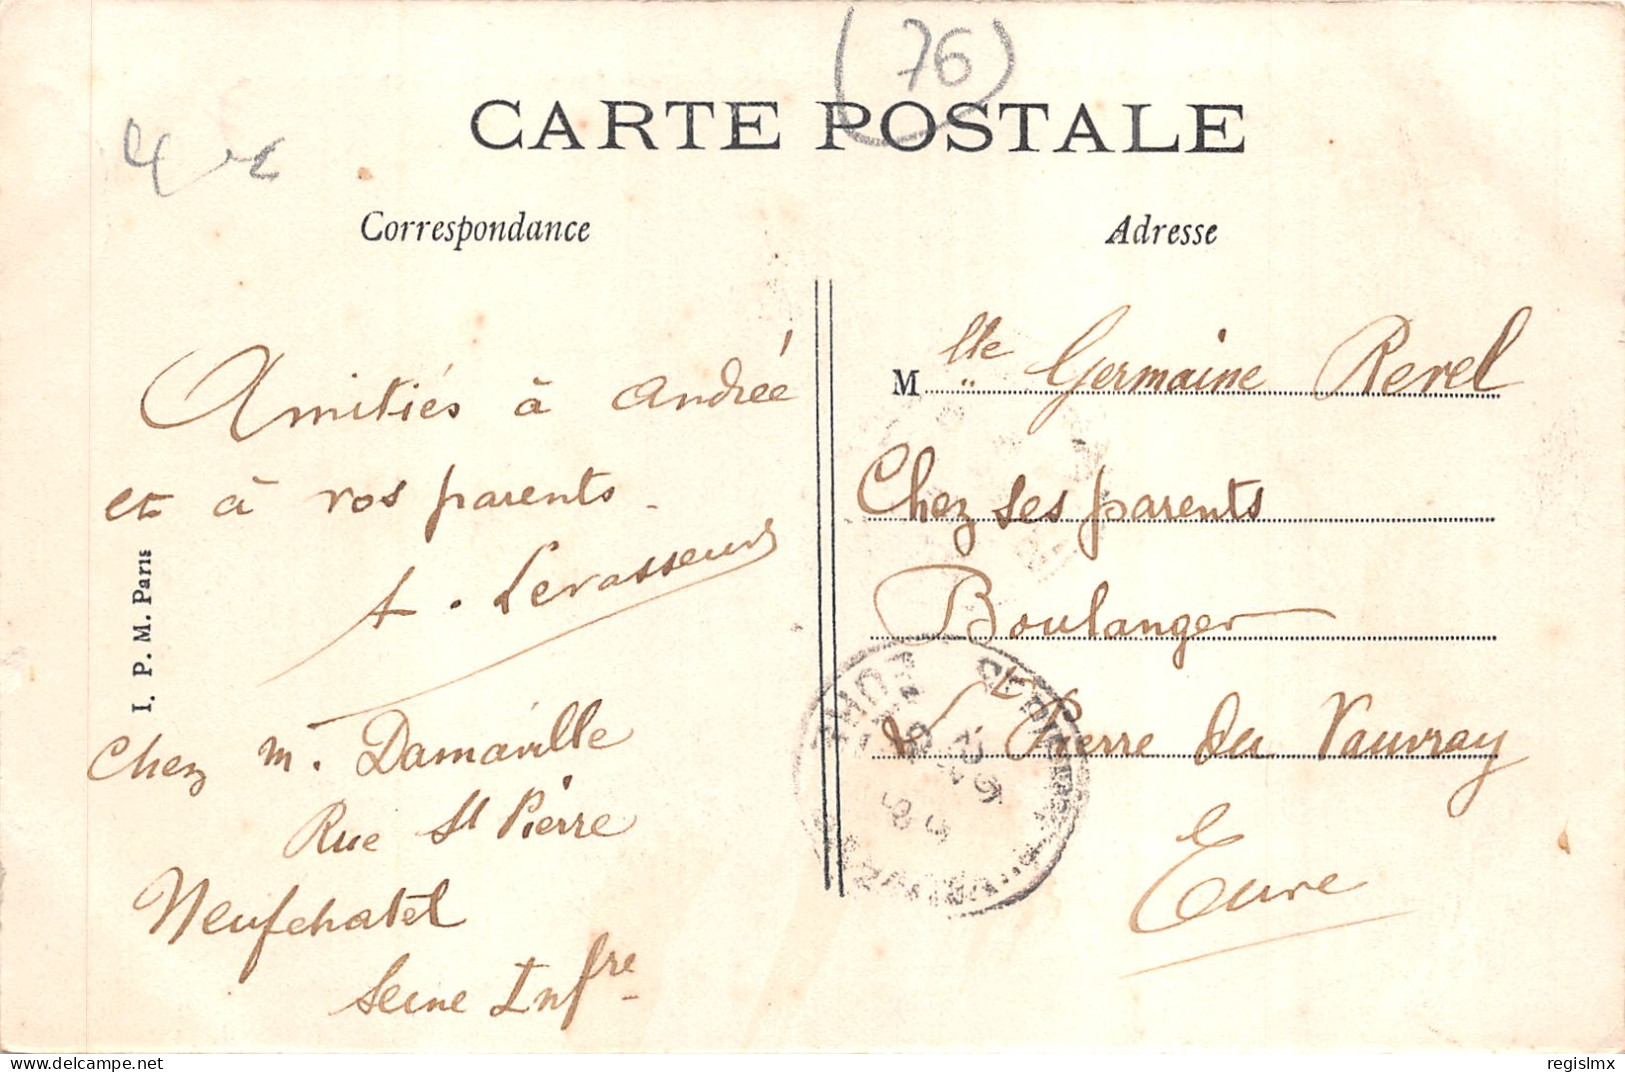 (76)
CARTE POSTALE
Correspondance
Adresse
Amitiés à Andrée
et à vos parents.
A. Levasseur
Chez M. Damaville
Rue St Pierre
Neufchatel
Seine Infre
I. P. M. Paris
Mlle Germaine Revel
Chez ses parents
Boulanger
St Pierre du Vauvray
Eure
EURE
regislmx